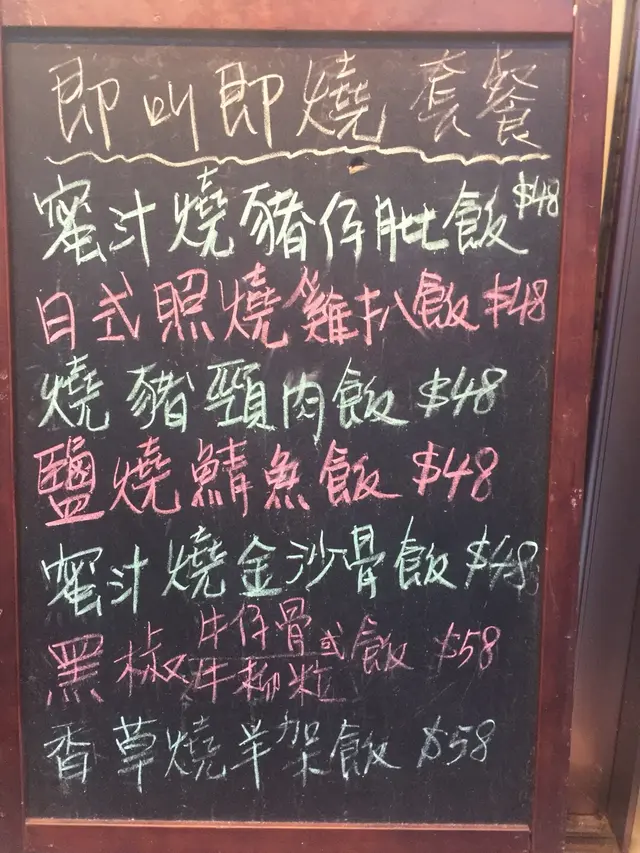 即叫即燒 套餐
蜜汁燒豬仔肶飯 $48
日式照燒雞扒飯 $48
燒豬頸肉飯 $48
鹽燒鯖魚飯 $48
蜜汁燒金沙骨飯 $48
黑椒牛仔骨或牛柳粒飯 $58
香草燒羊架飯 $58